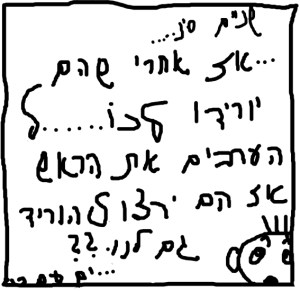 שניים סינ.....
...אז אחרי שהם
יורידו לכו.......ל
הערבים את הראש
אז הם ירצו להוריד
גם לנו.??
...ים עם